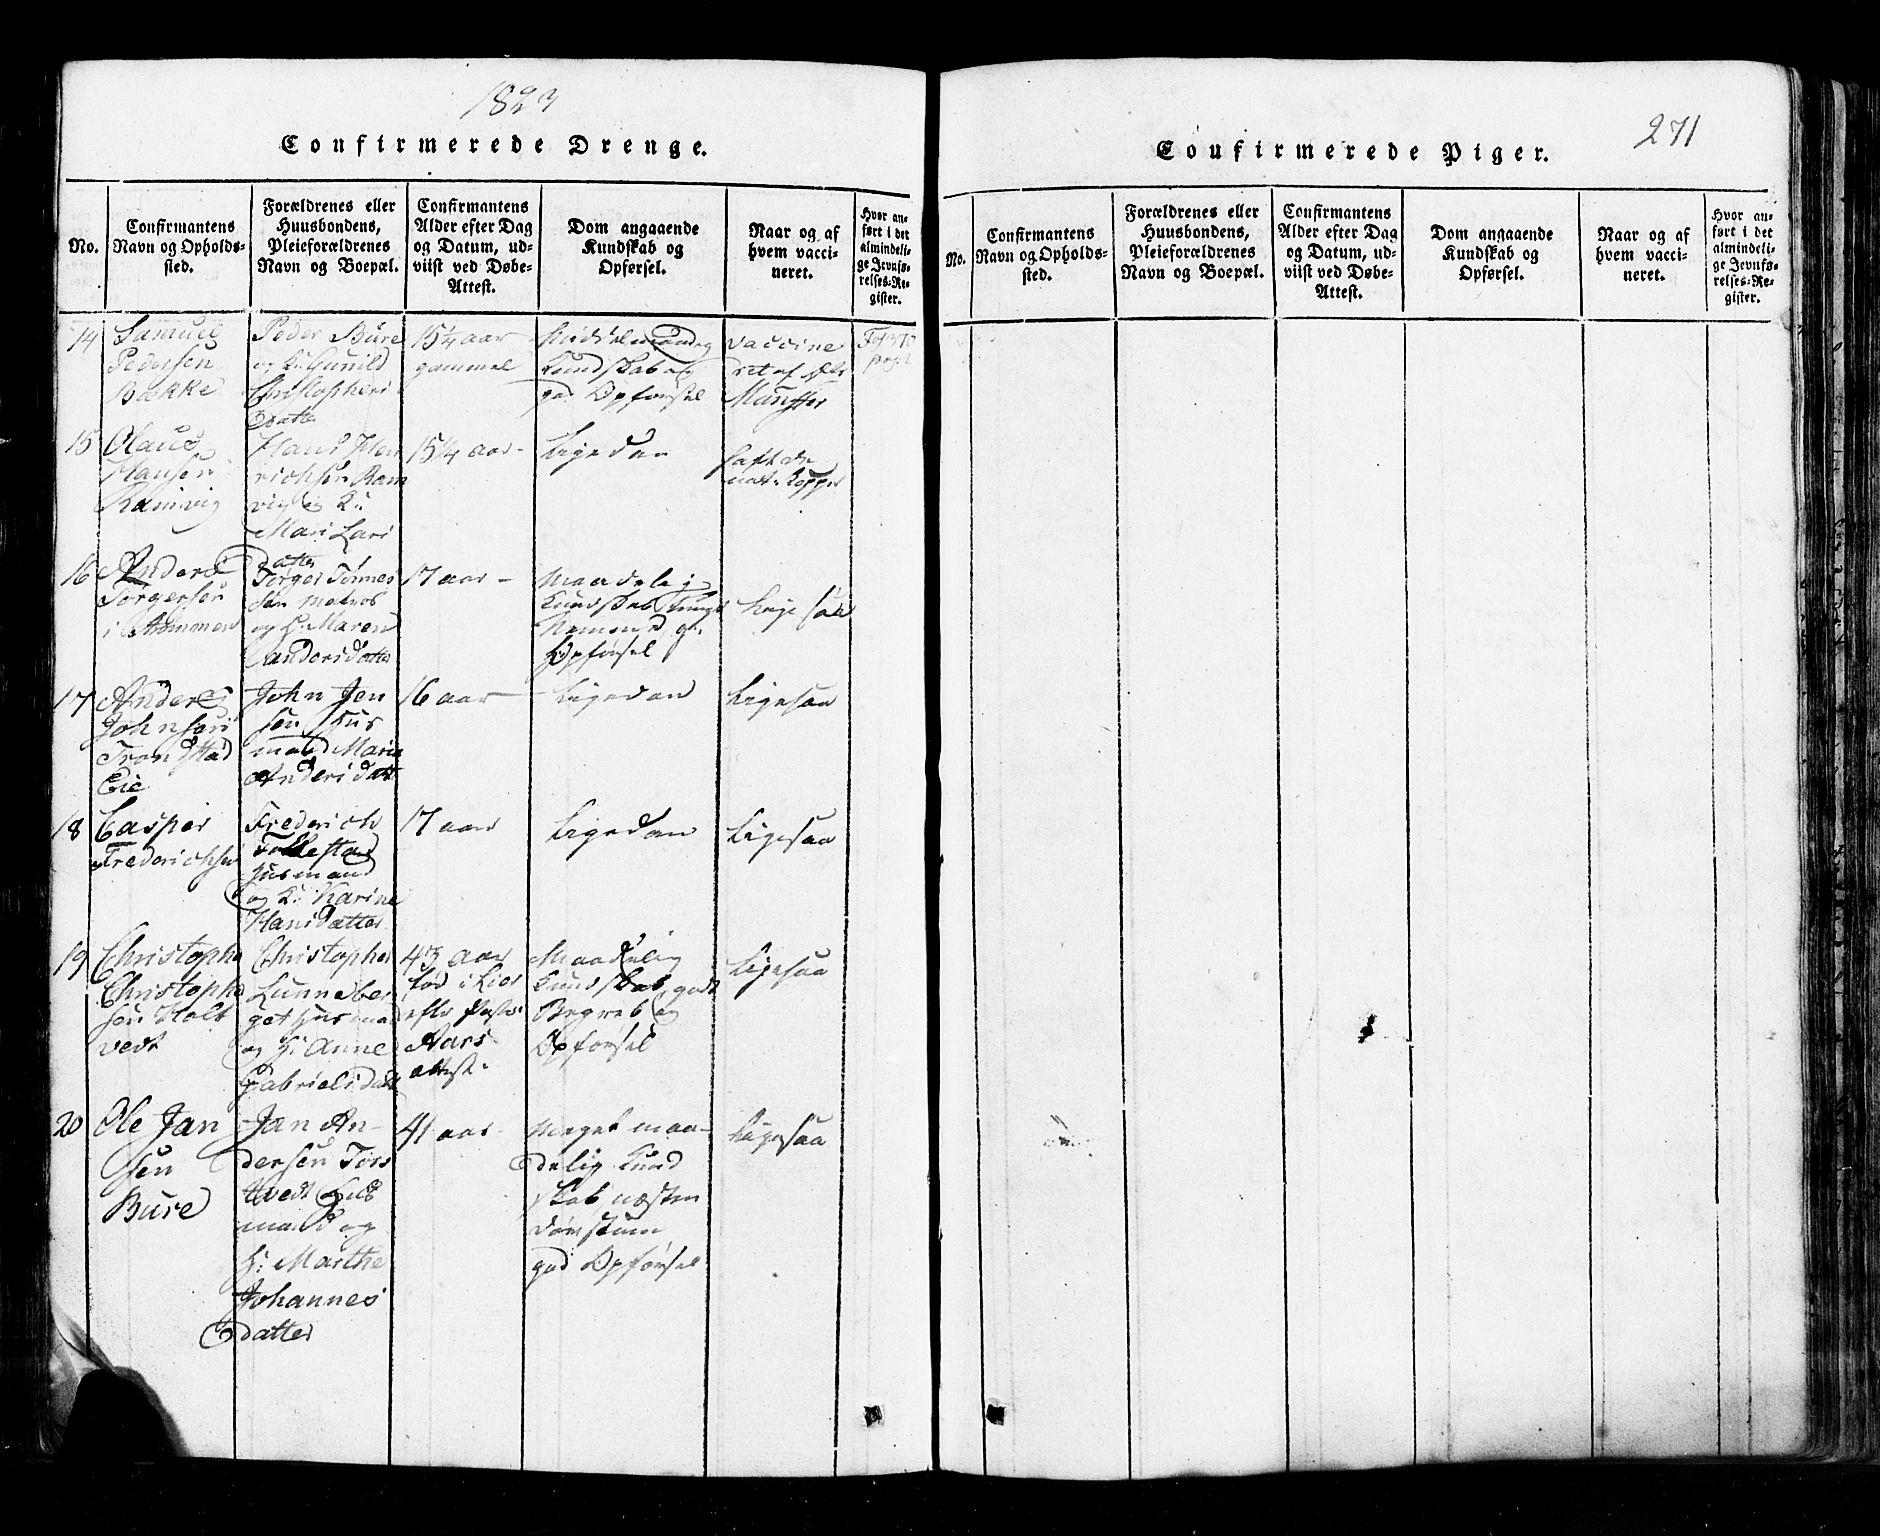 1823
Confirmerede Drenge.
No.
Confirmantens
Navn og Opholds-
sted.
Forældrenes eller
Huusbondens,
Pleieforældrenes
Navn og Boepæl.
Confirmantens
Alder efter Dag
og Datum, ud-
viist ved Døbe-
Attest.
Dom angaaende
Kundskab og
Opførsel.
Naar og af
hvem vacci-
neret.
Hvor an-
ført i det
almindeli-
ge Jevnfø-
relses-Re-
gister.
14
Samuel
Pedersen
Bakke
Peder Bure
og K: Gunild
Christophers
Datter
15 1/4 aar
gammel
Kundskab og
god Opførsel
vaccine
ret af
15
Olaus
Hansen
Ramvig
Hans Hen
richsen Ram
vig og K:
Mari Lars
Datter
15 1/4 aar -
Ligedan
haft de
nat. Kopper
16
Anders
Torgersen
Torger Tønnes
sen matros
og K: Maren
Andersdatter
17 aar -
Maadelig
Kundskab
Opførsel
Lige saa
17
Anders
Johnsen
Trondstad
Eie
John Jen
sen Hus
mand Maria
Andersdatt
16 aar -
Ligedan
Ligesaa
18
Casper
Frederichsen
Frederich
Follestad
Husmand
og K: Karine
Hansdatter
17 aar
Ligedan
Ligesaa
19
Christopher
Christopher
sen Holt
vedt
Christopher
Lunneber
get Husmand
og K: Anne
Gabrielsdatt
43 aar
fød i Lier
efter Pastor
Aars
attest.
Maadelig
Kundskab, godt
Begreb og
Opførsel
Ligesaa
20
Ole Jan
sen
Bure
Jan An-
dersen Tors
tvedt Hus
mand og
K: Marthe
Johannes
Datter
41 aar
Meget maa-
delig Kund
skab næsten
døvstum
god Opførsel
Ligesaa
Confirmerede Piger.
271
No.
Confirmantens
Navn og Opholds-
sted.
Forældrenes eller
Huusbondens,
Pleieforældrenes
Navn og Boepæl.
Confirmantens
Alder efter Dag
og Datum, ud-
viist ved Døbe-
Attest.
Dom angaaende
Kundskab og
Opførsel.
Naar og af
hvem vacci-
neret.
Hvor an-
ført i det
almindeli-
ge Jevnfø-
relses-Re-
gister.